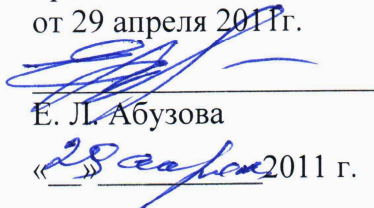 от 29 апреля 2011г.
Е. Л. Абузова
«29» апреля 2011 г.